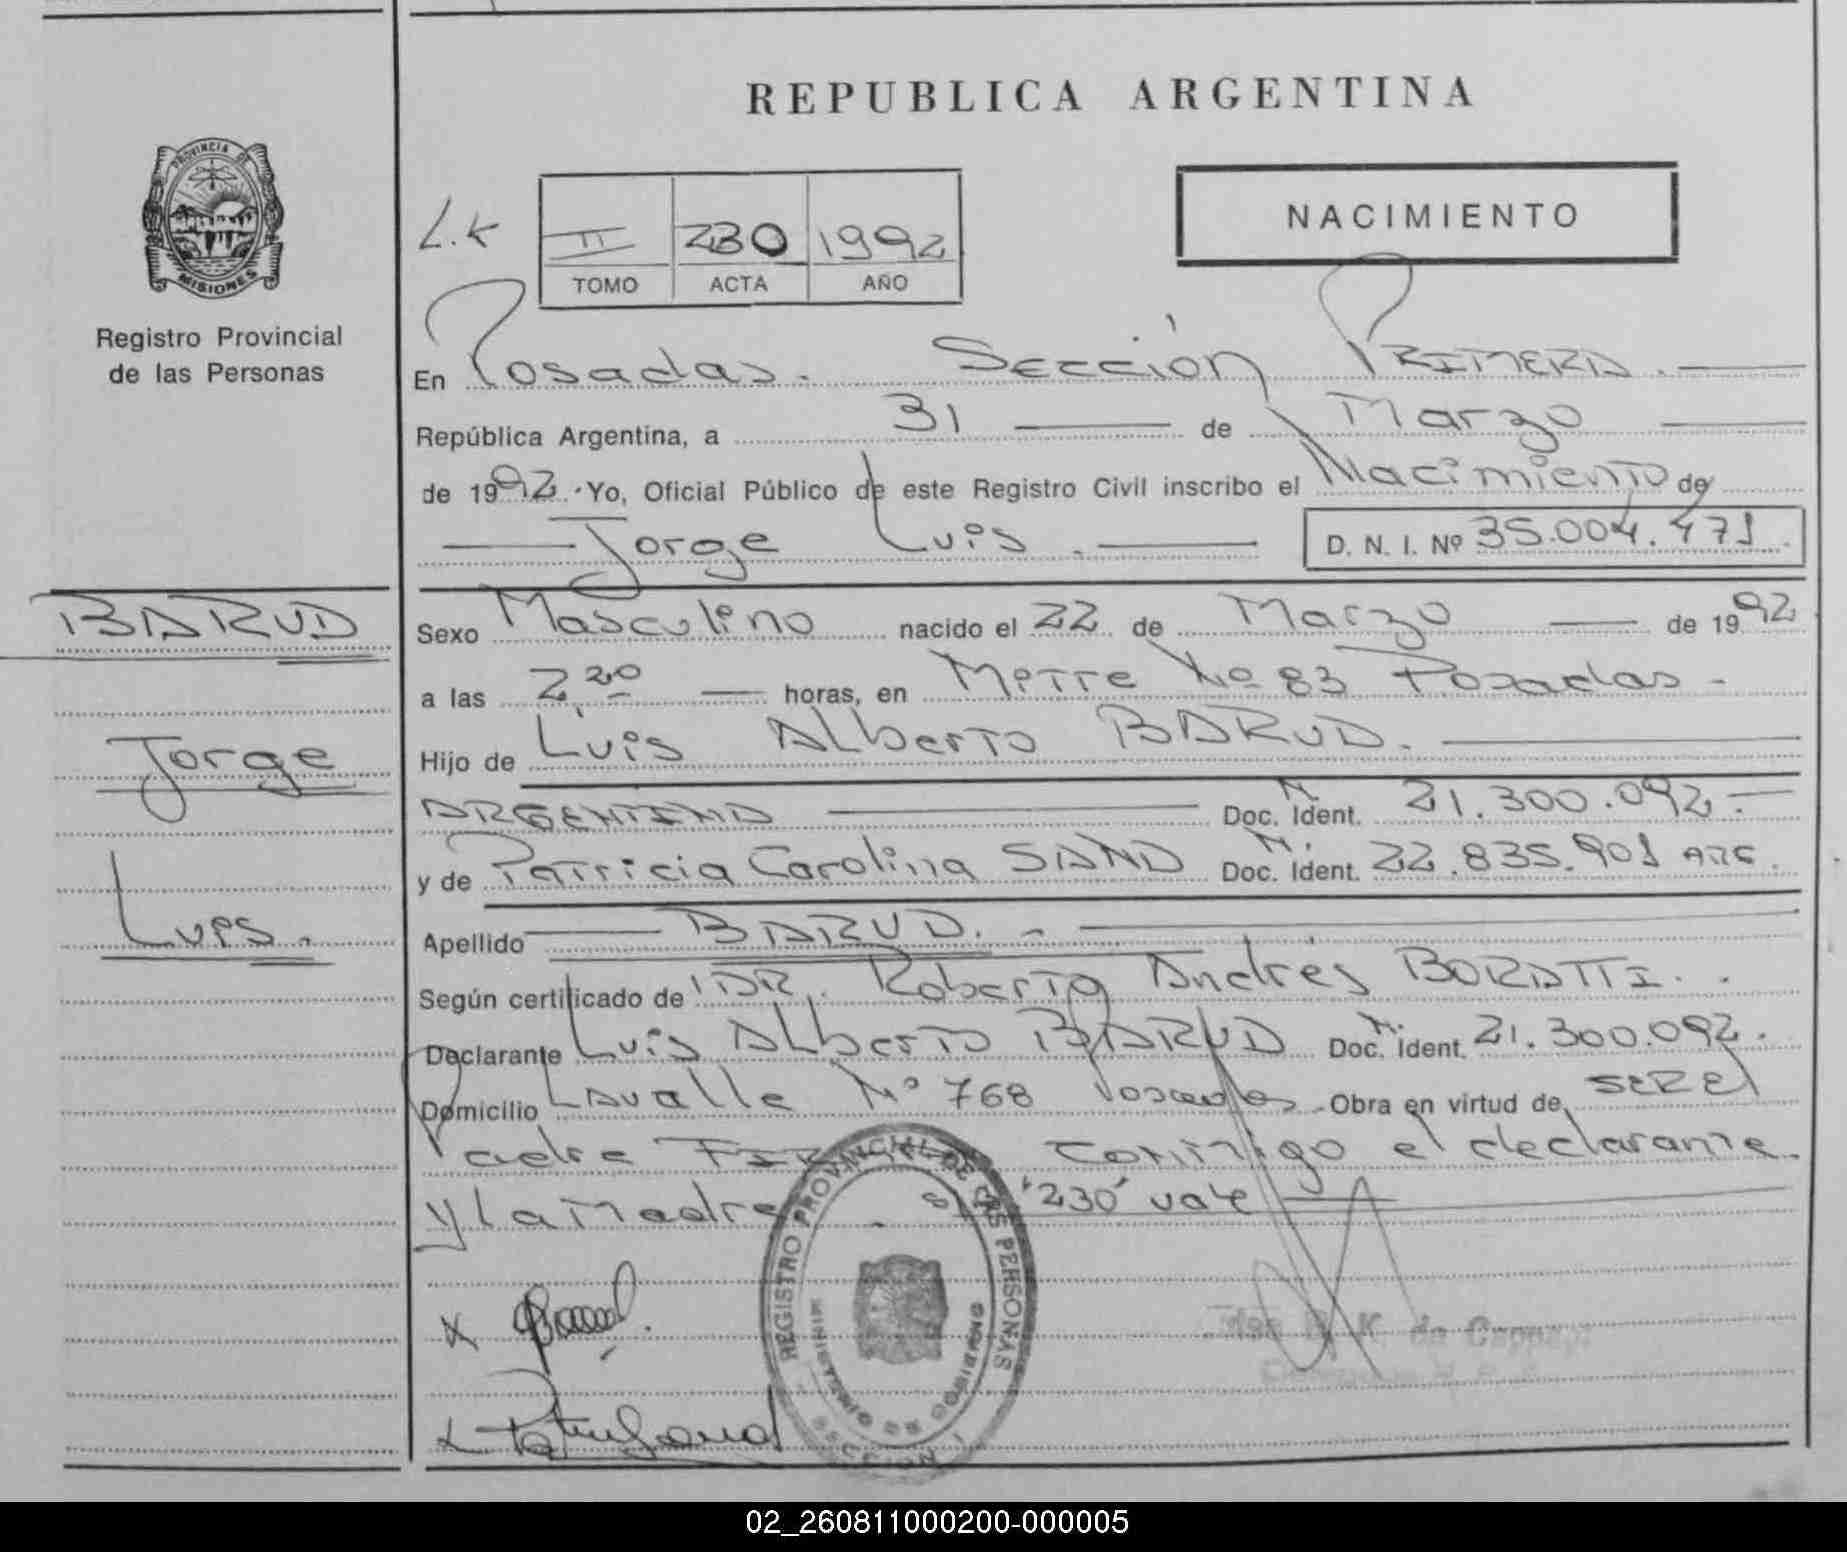 REPUBLICA ARGENTINA
PROVINCIA DE
MISIONES
Registro Provincial
de las Personas
NACIMIENTO
L.K
II 230 1992
TOMO ACTA AÑO
En Posadas. Sección PRIMERA.
República Argentina, a 31 de Marzo
de 1992. Yo, Oficial Público de este Registro Civil inscribo el Nacimiento de
Jorge Luis. D. N. I. Nº 35.004.471.
BARUD
Jorge
Luis.
Sexo Masculino nacido el 22 de Marzo de 1992
a las 2,20 horas, en Mitre Nº 83 Posadas -
Hijo de Luis Alberto BARUD.
ARGENTINO Doc. Ident. N 21.300.092.-
y de Patricia Carolina SAND Doc. Ident. N. 22.835.901 ARG.
Apellido BARUD. -
Según certificado de DR. Roberto Andrés BORATTI.
Declarante Luis Alberto BARUD Doc. Ident. N. 21.300.092.
Domicilio Lavalle Nº 768 Posadas. Obra en virtud de SER el
Padre conmigo el declarante
y la Madre. S/R "230" vale
REGISTRO PROVINCIAL DE LAS PERSONAS
MINISTERIO DE GOBIERNO
SECCION 1
de
02_260811000200-000005